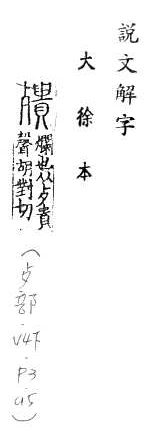 說文解字
大徐本
殨 爛也从歺貴
聲胡對切
(歺部.V4下.P3.a5)